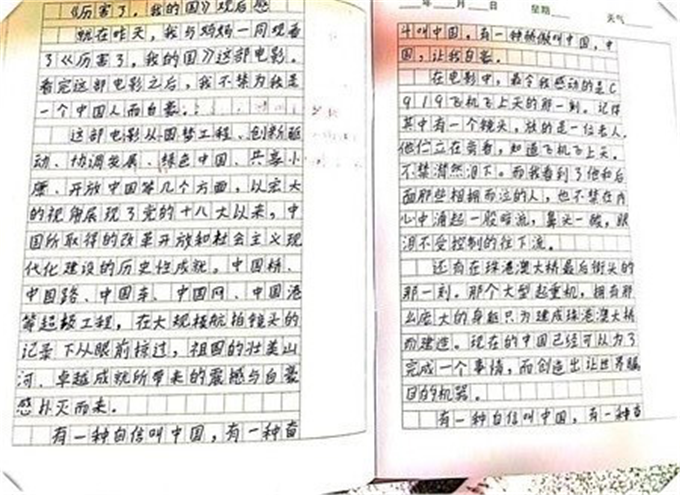 《厉害了，我的国》观后感
就在昨天，我与妈妈一同观看
了《厉害了，我的国》这部电影。
看完这部电影之后，我不禁为我是
一个中国人而自豪。
这部电影从圆梦工程、创新驱
动、协调发展、绿色中国、共享小
康、开放中国等几个方面，以宏大
的视角展现了党的十八大以来，中
国所取得的改革开放和社会主义现
代化建设的历史性成就。中国桥、
中国路、中国车、中国网、中国港
等超级工程，在大规模航拍镜头的
记录下从眼前掠过，祖国的壮美山
河、卓越成就所带来的震撼与自豪
感扑灭而来。
有一种自信叫中国，有一种奋
___年___月___日 星期___ 天气
斗叫中国，有一种骄傲叫中国，中
国，让我自豪。
在电影中，最令我感动的是C
919飞机飞上天的那一刻。记得
其中有一个镜头，放的是一位老人，
他伫立在旁看，知道飞机飞上天，
不禁潸然泪下。而我看到了他和后
面那些相拥而泣的人，也不禁在内
心中涌起一股暗流，鼻头一酸，眼
泪不受控制的往下流。
还有在珠港澳大桥最后街头的
那一刻。那个大型起重机，拥有那
么庞大的身躯只为建成珠港澳大桥
而建造。现在的中国已经可以为了
完成一个事情，而创造出让世界瞩
目的机器。
有一种自信叫中国，有一种奋